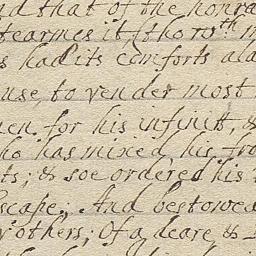 nd that of the honra
tearmes it, (tho ror
s had its comforts ala
use, to render most
en for his infinit, &
ho has mixed his fro
ts; & soe ordered his
scape; And bestowed
others; Of a deare, &